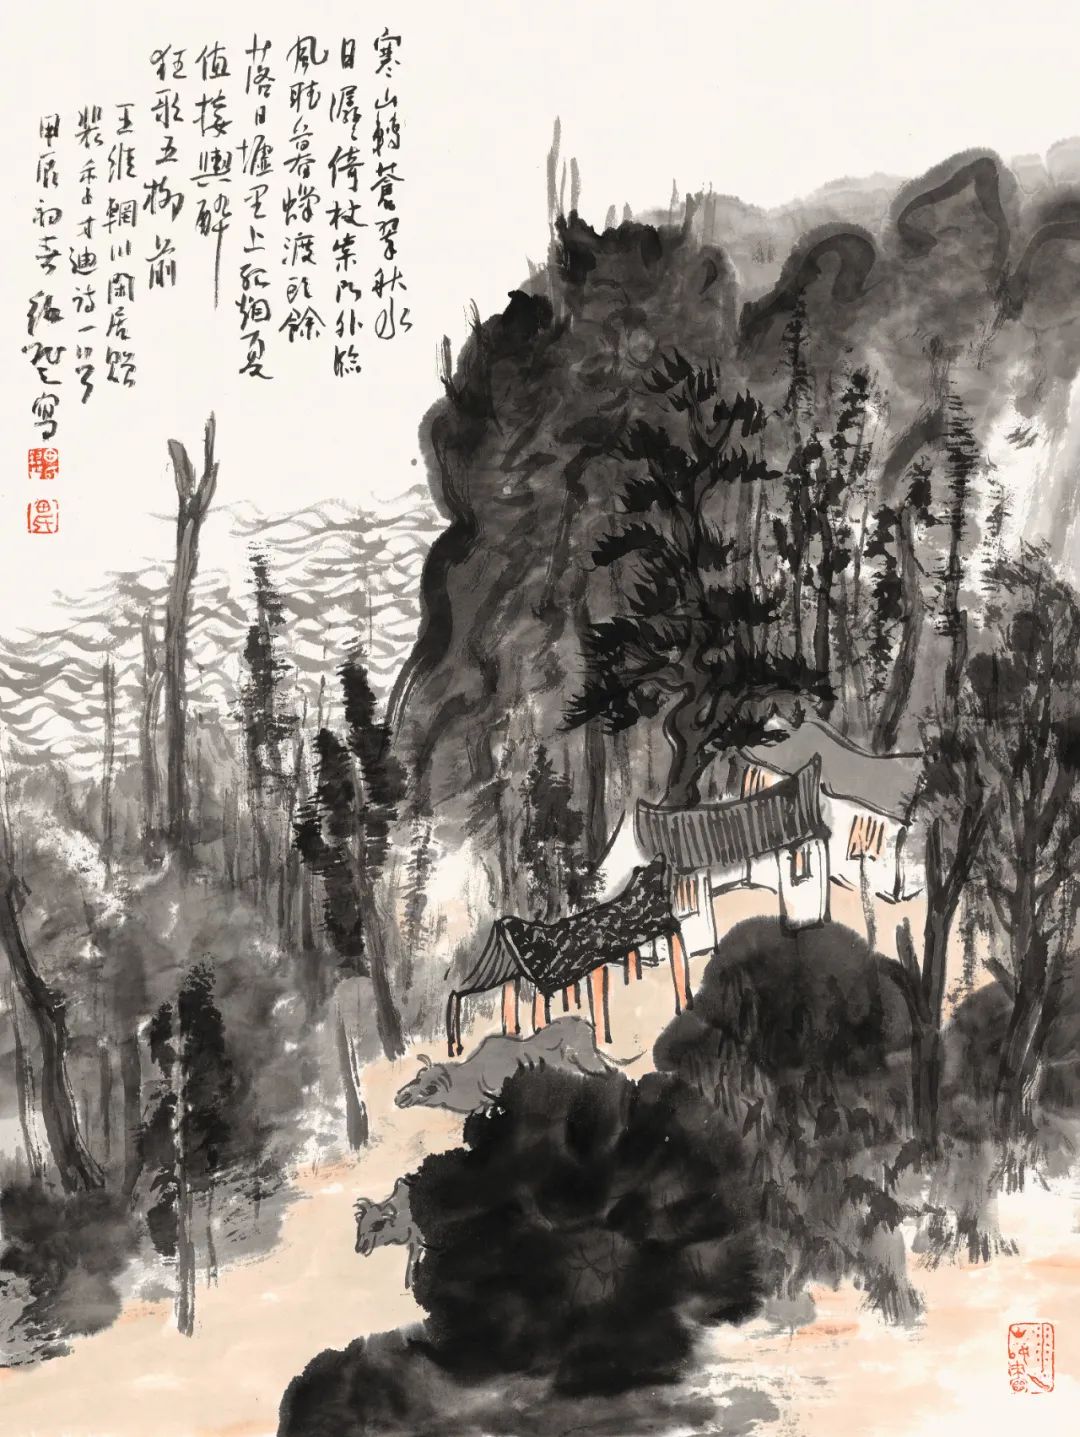 寒山轉蒼翠秋水
日潺〻倚杖柴门外临
風聽暮蟬渡头餘
落日墟里上孤烟夏
值接輿醉
狂歌五柳前
王維輞川閑居贈
裴秀才迪詩一首
甲辰初春 寫